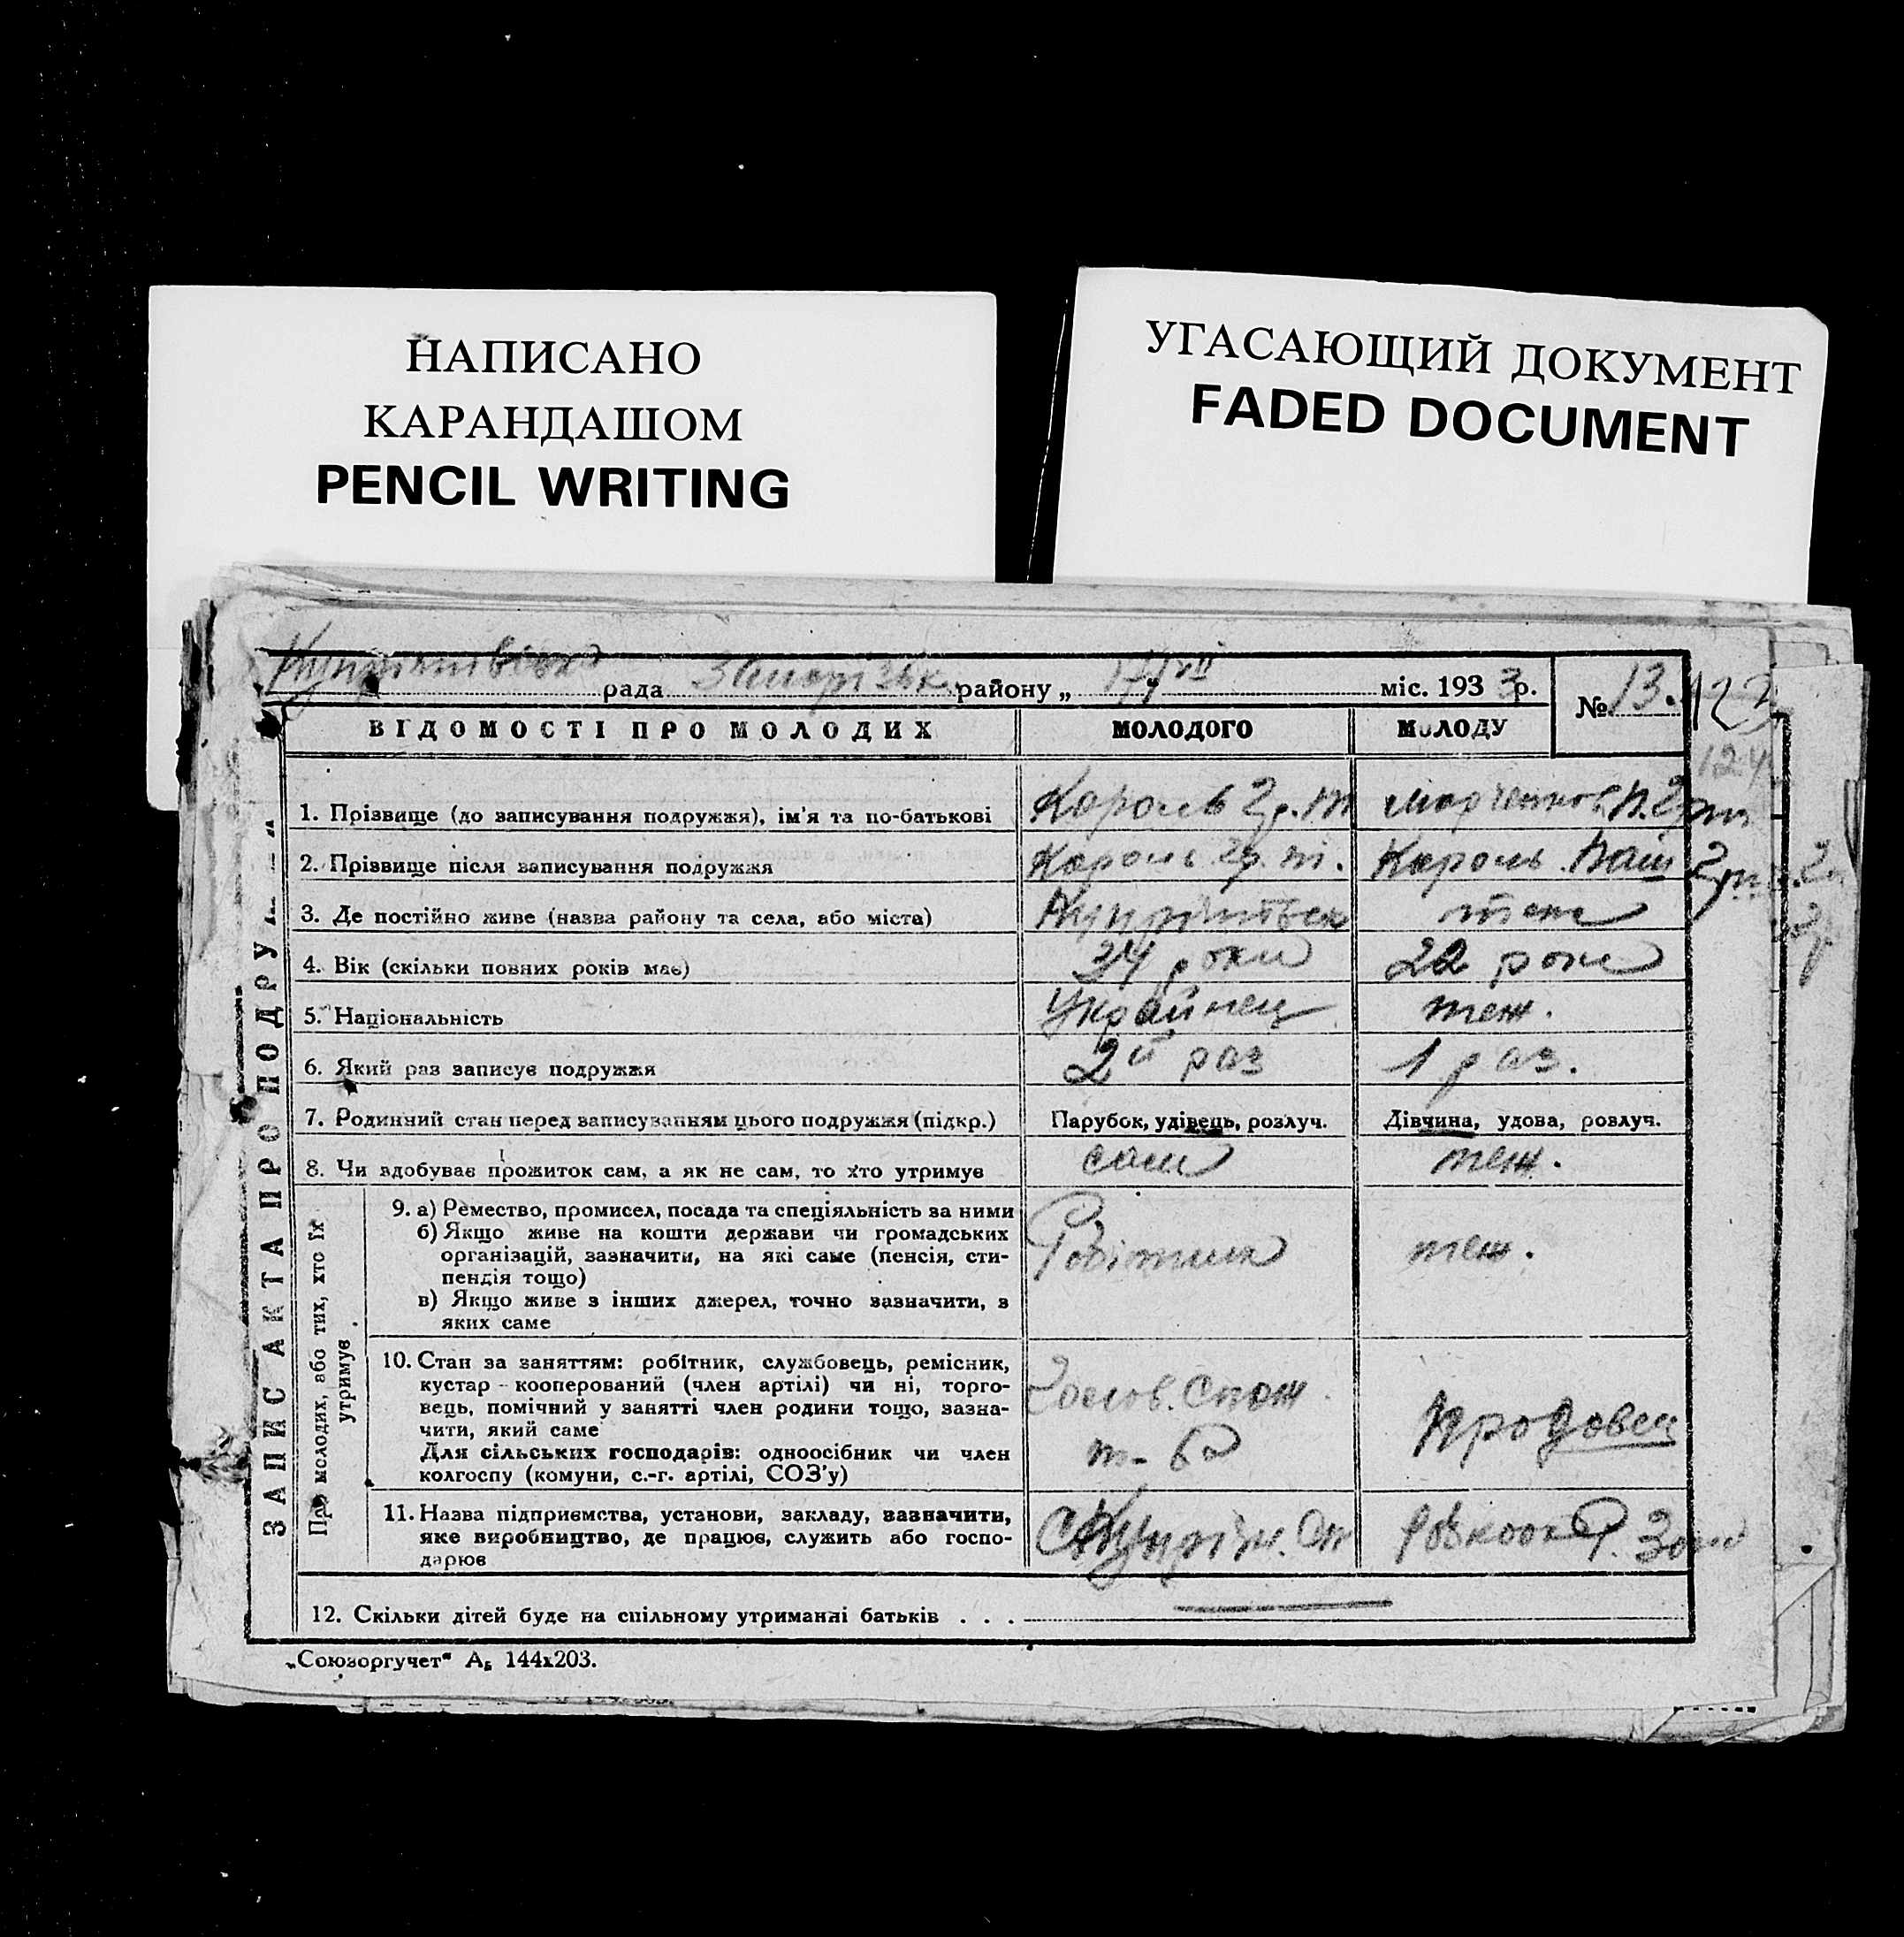 НАПИСАНО
КАРАНДАШОМ
PENCIL WRITING
УГАСАЮЩИЙ ДОКУМЕНТ
FADED DOCUMENT
рада Запорізьк району „ 17 " VII міс. 1933р. № 13.
123
124
ЗАПИС АКТА ПРО ПОДРУ
ВІДОМОСТІ ПРО МОЛОДИХ МОЛОДОГО МОЛОДУ
1. Прізвище (до записування подружжя), ім'я та по-батькові Король Гр. Марченко П.
2. Прізвище після записування подружжя Король Гр. Король
3. Де постійно живе (назва району та села, або міста) теж
4. Вік (скільки повних років має) 34 роки 22 роки
5. Національність Українец теж.
6. Який раз записує подружжя 2й раз 1 раз.
7. Родинний стан перед записуванням цього подружжя (підкр.) Парубок, удівець, розлуч. Дівчина, удова, розлуч.
8. Чи здобуває прожиток сам, а як не сам, то хто утримує сам теж.
Про молодих, або тих, хто їх
утримує
9. а) Ремество, промисел, посада та спеціяльність за ними
б) Якщо живе на кошти держави чи громадських
організацій, зазначити, на які саме (пенсія, сти-
пендія тощо)
в) Якщо живе з інших джерел, точно зазначити, з
яких саме
Робітник теж.
10. Стан за заняттям: робітник, службовець, ремісник,
кустар-кооперований (член артілі) чи ні, торго-
вець, помічний у занятті член родини тощо, зазна-
чити, який саме
Для сільських господарів: одноосібник чи член
колгоспу (комуни, с.-г. артілі, СОЗ'у)
Голов. Спож
т-ва
продовец
11. Назва підприємства, установи, закладу, зазначити,
яке виробництво, де працює, служить або госпо-
дарює
12. Скільки дітей буде на спільному утриманні батьків . . .
„Союзоргучет" А₅ 144х203.